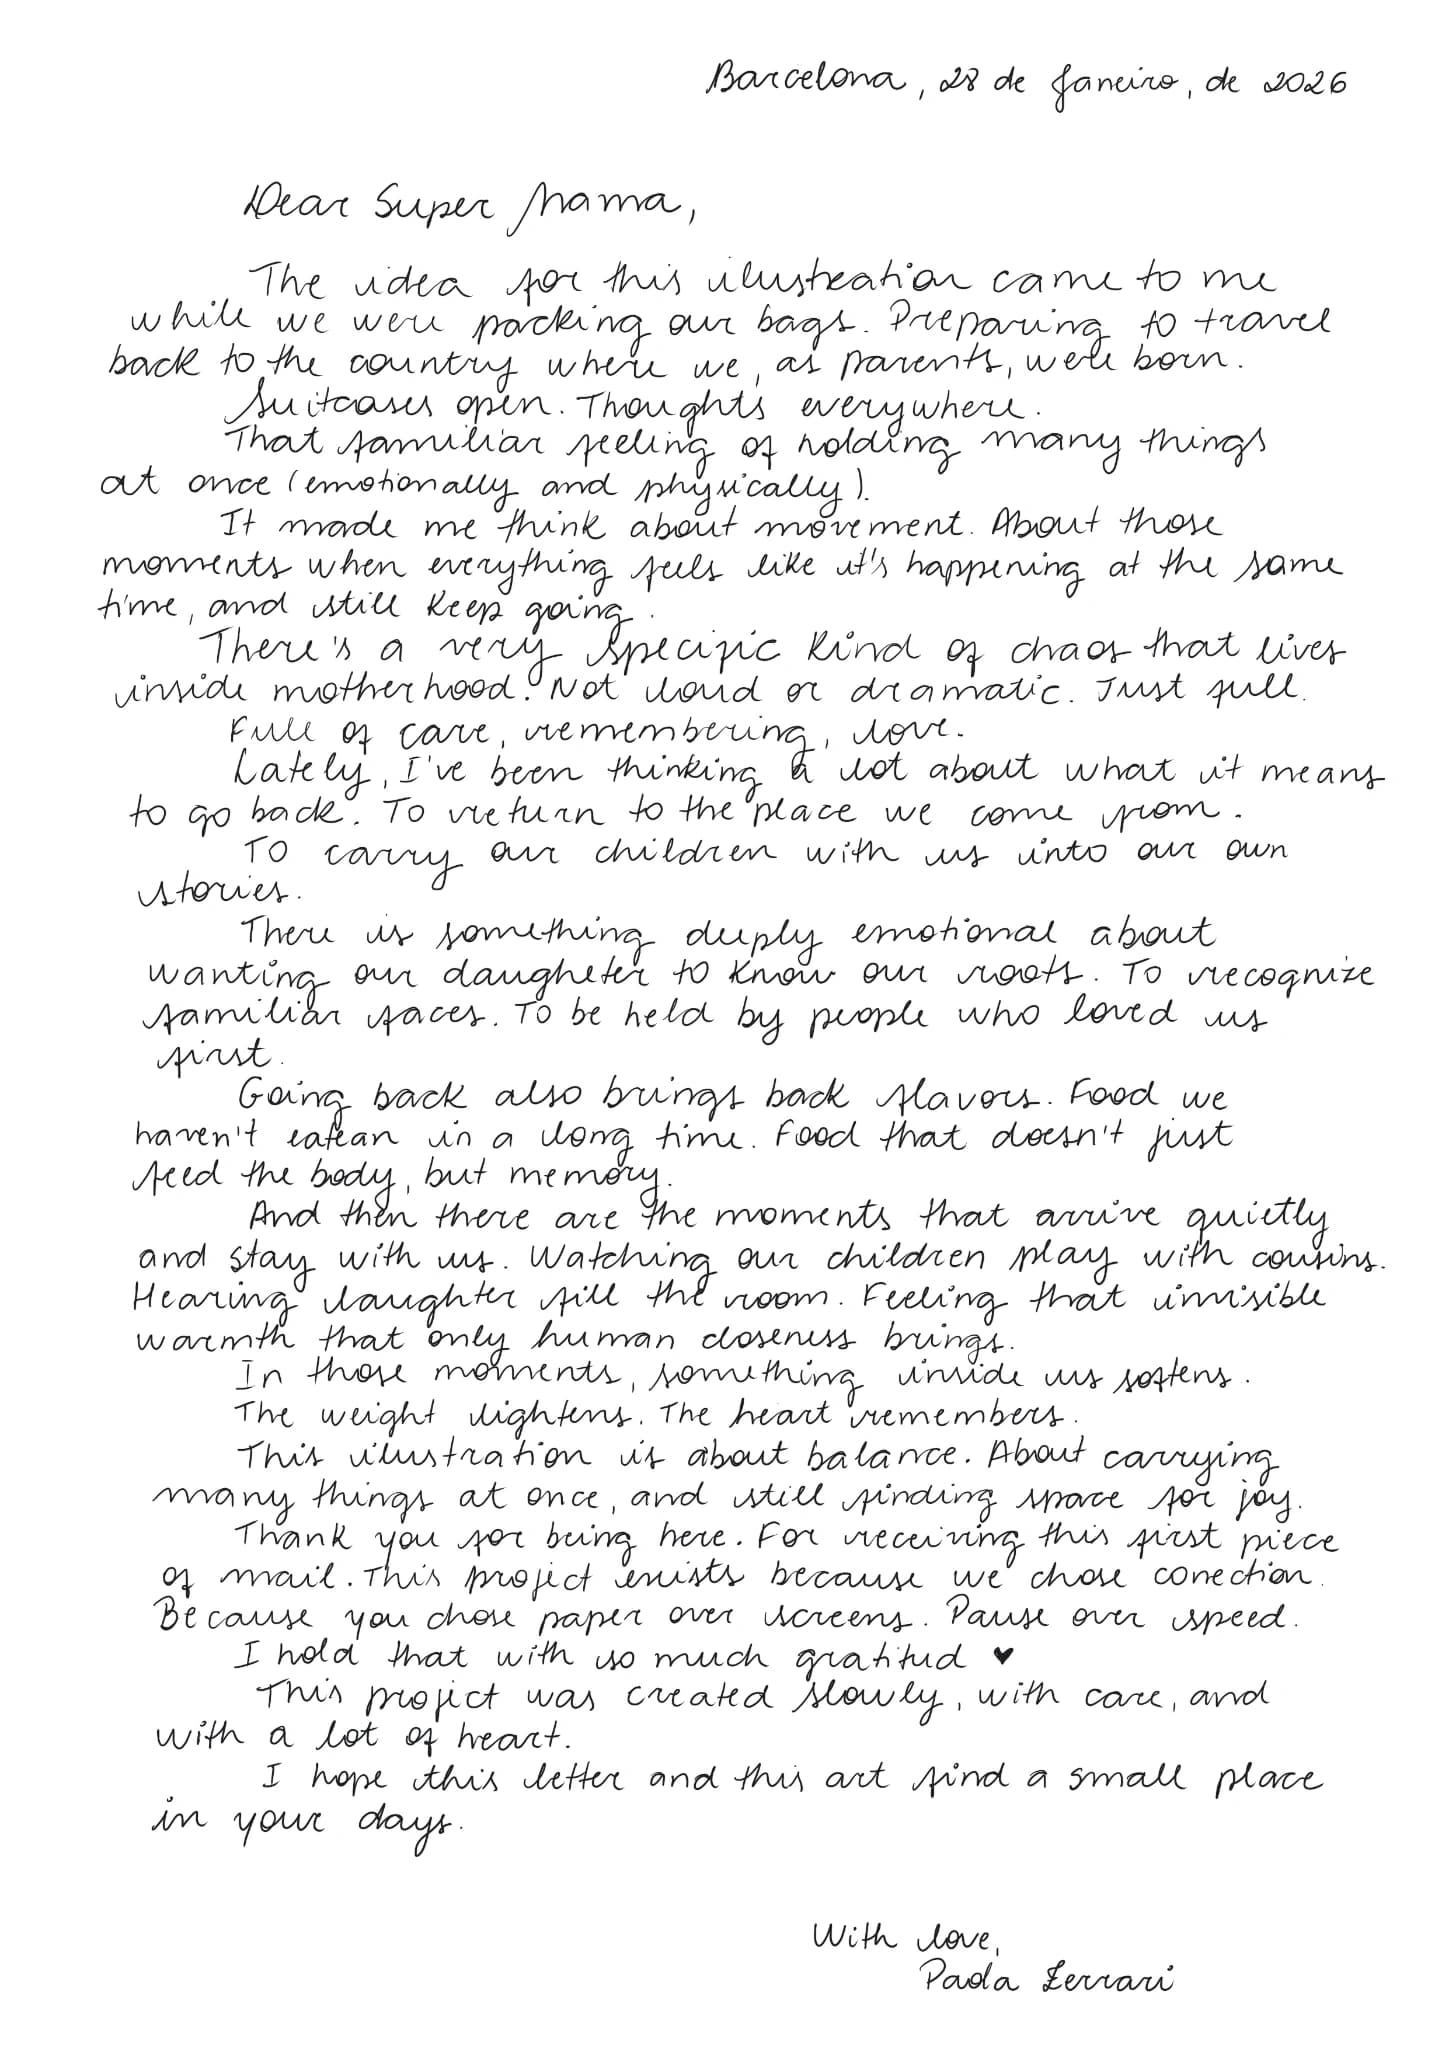 Barcelona, 28 de Janeiro, de 2026
Dear Super Mama,
The idea for this ilustreation came to me
while we were packing our bags. Preparing to travel
back to the country where we, as parents, were born.
Suitcases open. Thoughts everywhere.
That familiar feeling of holding many things
at once (emotionally and physically).
It made me think about movement. About those
moments when everything feels like it's happening at the same
time, and still keep going.
There's a very specific kind of chaos that lives
inside motherhood. Not loud or dramatic. Just full.
Full of care, remembering, love.
Lately, I've been thinking a lot about what it means
to go back. To return to the place we come from.
To carry our children with us into our own
stories.
There is something deeply emotional about
wanting our daugheter to know our roots. To recognize
familiar faces. To be held by people who loved us
first.
Going back also brings back flavors. Food we
haven't eatean in a long time. Food that doesn't just
feed the body, but memory.
And then there are the moments that arrive quietly
and stay with us. Watching our children play with cousins.
Hearing laughter fill the room. Feeling that invisible
warmth that only human closeness brings.
In those moments, something inside us softens.
The weight lightens. The heart remembers.
This ilustration is about balance. About carrying
many things at once, and still finding space for joy.
Thank you for being here. For receiving this first piece
of mail. This project exists because we chose conection.
Because you chose paper over screens. Pause over speed.
I hold that with so much gratitud ♥
This project was created slowly, with care, and
with a lot of heart.
I hope this letter and this art find a small place
in your days.
With love,
Paola Ferrari